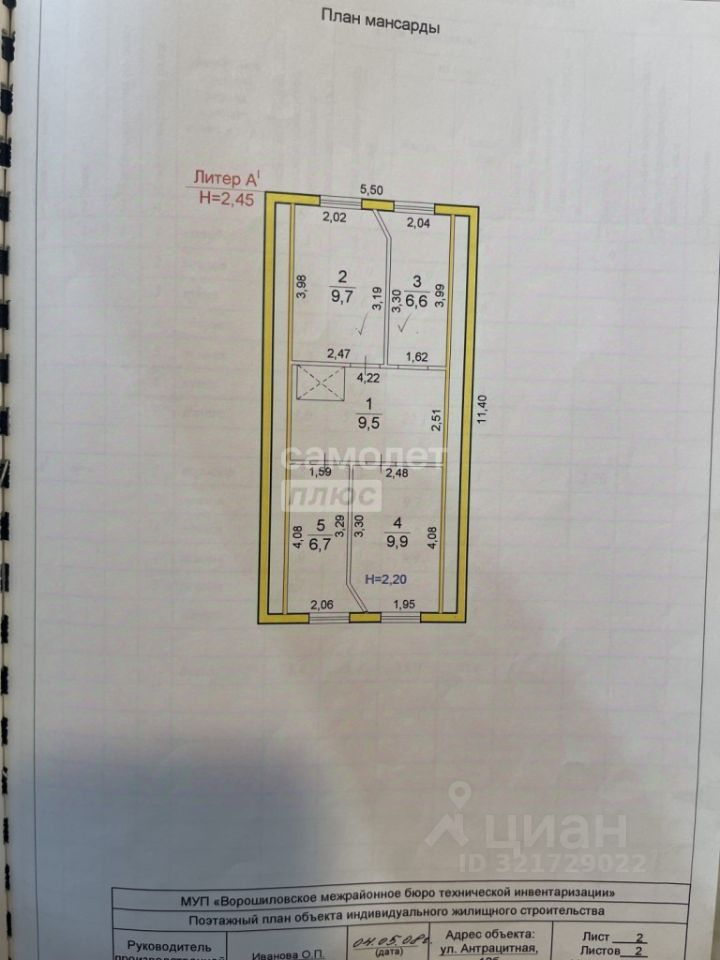 План мансарды
Литер А^I
Н=2,45
5,50
2,02
2,04
3,98
2
9,7
3,19
3,30
3
6,6
3,99
2,47
1,62
4,22
1
9,5
2,51
11,40
самолет
плюс
1,59
2,48
4,08
5
6,7
3,29
3,30
4
9,9
4,08
Н=2,20
2,06
1,95
циан
ID 321729022
МУП «Ворошиловское межрайонное бюро технической инвентаризации»
Поэтажный план объекта индивидуального жилищного строительства
Руководитель
производственной
Иванова О.П.
04.05.08г.
(дата)
Адрес объекта:
ул. Антрацитная,
Лист 2
Листов 2